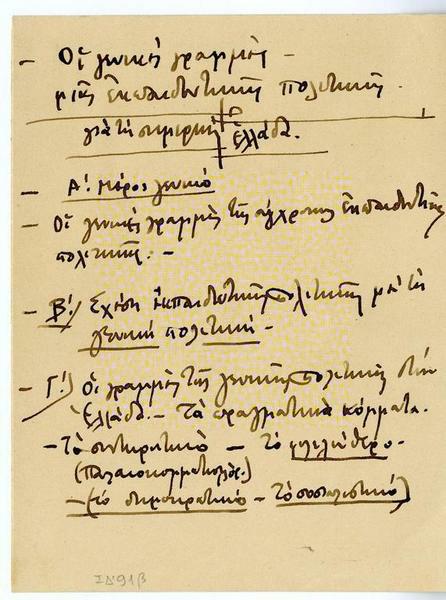 – Οἱ γενικές γραμμές –
μιᾶς ἐκπαιδευτικῆς πολιτικῆς
γιά τή σημερινή Ἑλλάδα.
– Α! Μέρος γενικό
– Οἱ γενικές γραμμές τῆς σύχρονης ἐκπαιδευτικῆς
πολιτικῆς. –
– Β!) Σχέση ἐκπαιδευτικῆς πολιτικῆς μέ τή
γενική πολιτική –
– Γ!) Οἱ γραμμές τῆς γενικῆς πολιτικῆς στήν
Ἑλλάδα. – Τά πραγματικά κόμματα.
– Τό συντηρητικό – Τό φιλελεύθερο.
(Παλαιοκομματισμός.)
– (τό δημοκρατικό – Τό σοσιαλιστικό)
ΙΔ91β